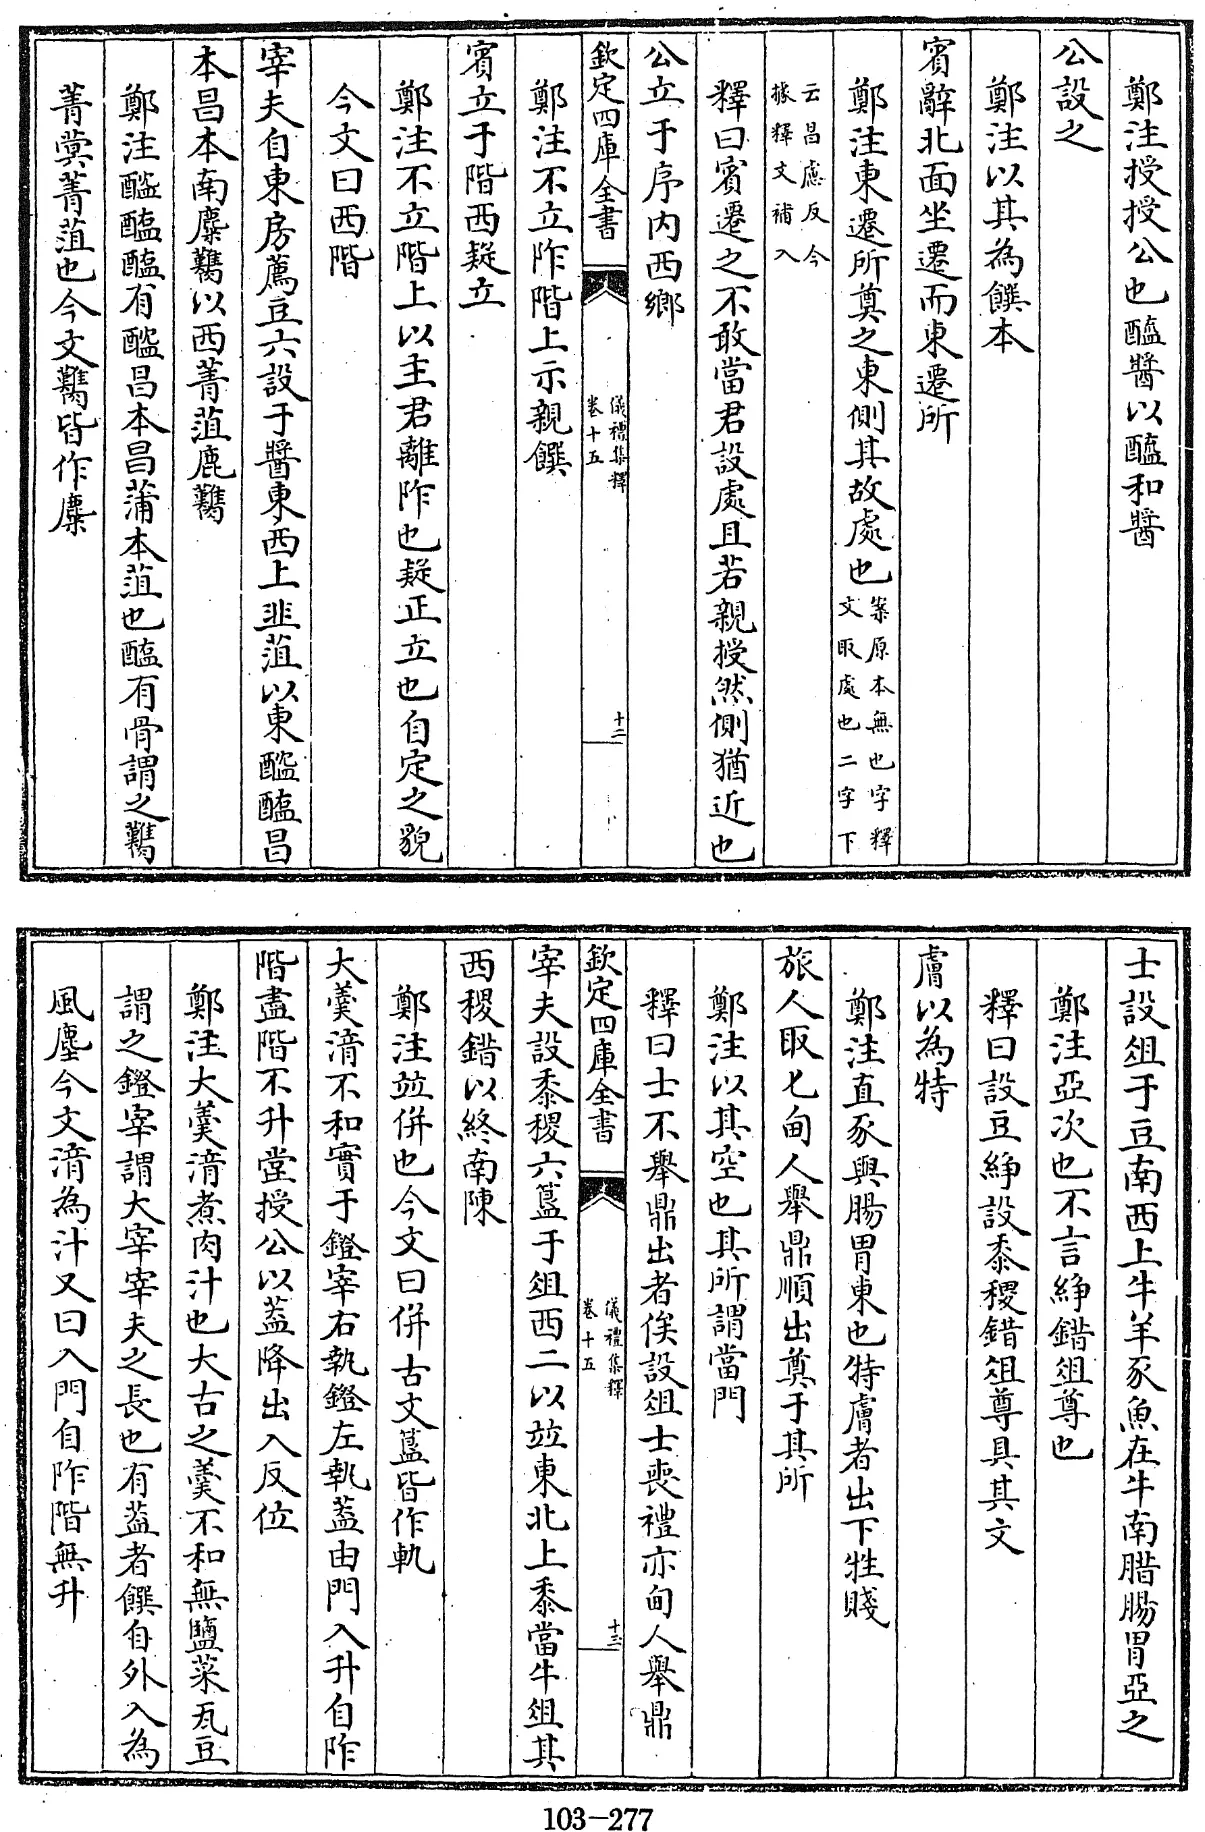 鄭注授授公也醯醬以醯和醬
公設之
鄭注以其為饌本
賓辭北面坐遷而東遷所
鄭注東遷所奠之東側其故處也案原本無也字釋
文取處也二字下
云昌慮反今
據釋文補入
釋曰賓遷之不敢當君設處且若親授然側猶近也
公立于序内西鄉
欽定四庫全書
儀禮集釋
卷十五
十二
鄭注不立阼階上示親饌
賓立于階西疑立
鄭注不立階上以主君離阼也疑正立也自定之貌
今文曰西階
宰夫自東房薦豆六設于醬東西上韭菹以東醓醢昌
本昌本南麋臡以西菁菹鹿臡
鄭注醓醢醢有醓昌本昌蒲本菹也醢有骨謂之臡
菁蓂菁菹也今文臡皆作麋
士設俎于豆南西上牛羊豕魚在牛南腊腸胃亞之
鄭注亞次也不言綪錯俎尊也
釋曰設豆綪設黍稷錯俎尊具其文
膚以為特
鄭注直豕與腸胃東也特膚者出下牲賤
旅人取匕甸人舉鼎順出奠于其所
鄭注以其空也其所謂當門
釋曰士不舉鼎出者俟設俎士喪禮亦甸人舉鼎
欽定四庫全書
儀禮集釋
卷十五
十三
宰夫設黍稷六簋于俎西二以竝東北上黍當牛俎其
西稷錯以終南陳
鄭注竝併也今文曰併古文簋皆作軌
大羹湆不和實于鐙宰右執鐙左執蓋由門入升自阼
階盡階不升堂授公以蓋降出入反位
鄭注大羹湆煮肉汁也大古之羹不和無鹽菜瓦豆
謂之鐙宰謂大宰宰夫之長也有蓋者饌自外入為
風塵今文湆為汁又曰入門自阼階無升
103-277